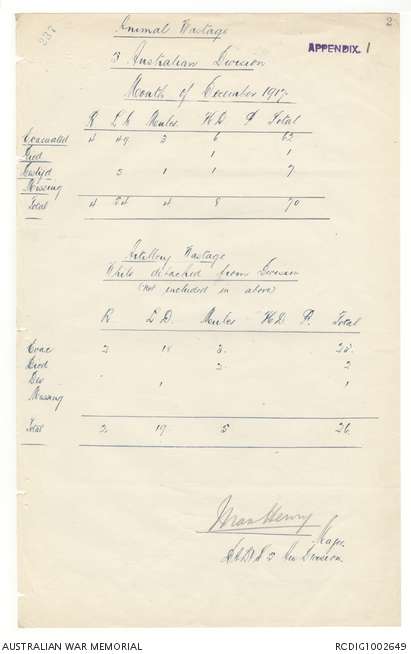 237
2
Animal Wastage
APPENDIX 1
3 Australian Division
Month of December 1917
R L.D. Mules H.D. P Total
Evacuated 4 49 3 6 62
Died 1 1
Destyd 5 1 1 7
Missing
Total 4 54 4 8 70
Artillery Wastage
While detached from Division
(Not included in above)
R L.D. Mules H.D. P. Total
Evac 2 18 3 23
Died 2 2
Des 1 1
Missing
Total 2 19 5 26
Max Henry
Major
D.A.D.V.S. Division
AUSTRALIAN WAR MEMORIAL
RCDIG1002649